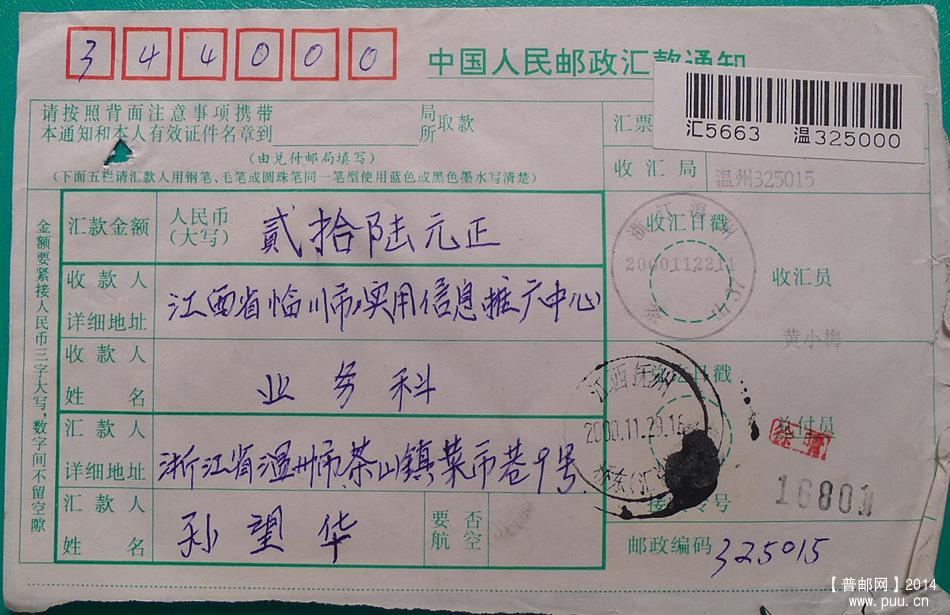 344000
中国人民邮政汇款通知
汇5663 温325000
请按照背面注意事项携带
本通知和本人有效证件名章到 局所取款
(由兑付邮局填写)
(下面五栏请汇款人用钢笔、毛笔或圆珠笔同一笔型使用蓝色或黑色墨水写清楚)
汇票
收汇局 温州325015
金额要紧接人民币三字大写,数字间不留空隙
汇款金额 人民币(大写) 贰拾陆元正
收款人详细地址 江西省临川市实用信息推广中心
收款人姓名 业务科
汇款人详细地址 浙江省温州市茶山镇菜市巷9号
汇款人姓名 孙望华
要航 否空
收汇日戳
浙江温州
2000112211
收汇员
黄小梅
日戳
江西抚州
2000.11.29.16
兑付员
16801
号
邮政编码 325015
【普邮网】2014
www.puu.cn